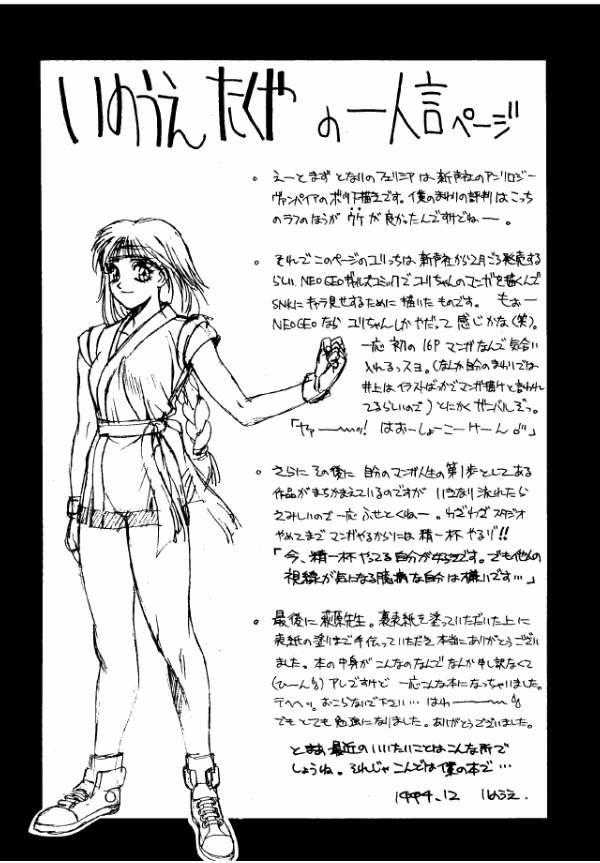 いのうえ たくや の 一人言ページ
。えーと まず となりのフェリシアは 新声社のアンソロジー
ヴァンパイアのボツ下描きです。僕のまわりの評判はこっち
のラフのほうが ウケが良かったんですけどねー。
。それでこのページのユリっちは 新声社から2月ごろ発売する
らしい NEOGEOギャルズコミックでユリちゃんのマンガを描くんで
SNKにキャラ見せするために描いたものです。 もぉー
NEOGEOなら ユリちゃんしかやだって 感じかな(笑)。
一応 初の 16P マンガなんで 気合い
入れるっスヨ。(なんか自分のまわりでは
井上はイラストばっかでマンガ描けと言われ
てるらしいので)とにかく ガンバルぞっ。
「ヤァーーッ! はおーしょーこーけーん」
。さらに その後に 自分のマンガ人生の第1歩としてある
作品がまちかまえているのですが いきなり 流れたら
さみしいので一応 ふせとくねー。わざわざ スタジオ
やめてまで マンガやるからには 精一杯 やるゾ!!
「今、精一杯やってる自分が好きです。でも他人の
視線が気になる臆病な自分は嫌いです…」
。最後に 萩原先生。裏表紙を塗っていただいた上に
表紙の塗りまで手伝っていただき 本当にありがとうござい
ました。本の中身がこんなのなんで なんか申し訳なくて
(ひーん) アレですけど 一応こんな本になっちゃいました。
テヘヘッ。おこらないで下さい… はわーーー
でも とても 勉強になりました。ありがとうございました。
とまぁ 最近の いいたいことは こんな所で
しょうね。それじゃ こんどは 僕の本で…
1994.12 いのうえ.